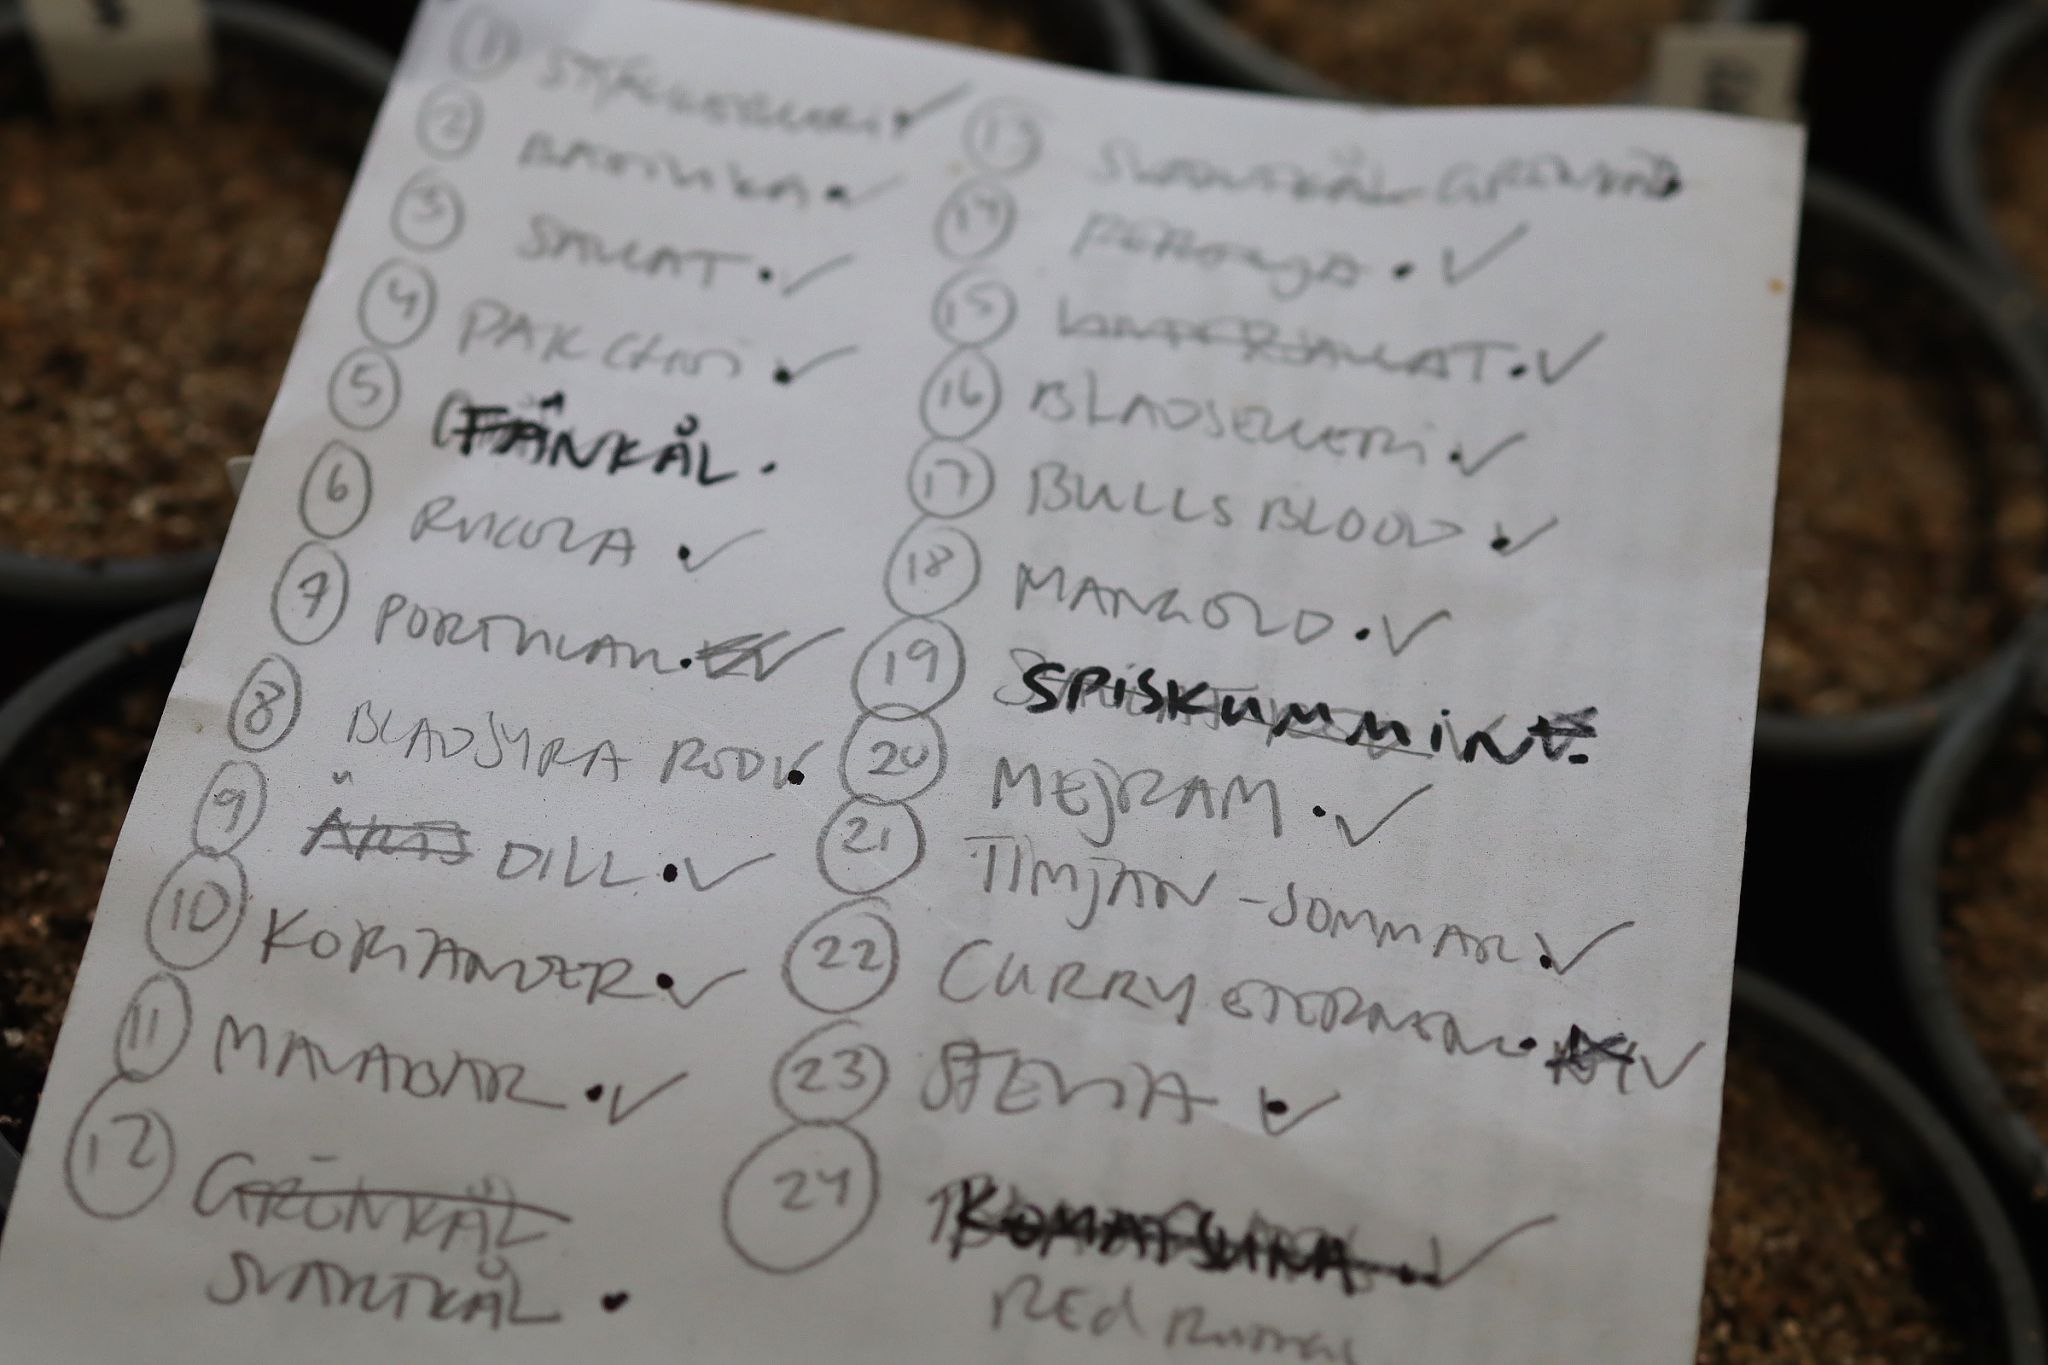 1
2
3 SALLAT
4 PAK CHOI
5 FÄNKÅL
6 RUCOLA
7 PORTULAK
8 BLADSYRA RÖD
9 ÄRTS DILL
10 KORIANDER
11 MALABAR
12 GRÖNKÅL
SVARTKÅL
13 SVARTKÅL GRÖNKÅL
14
15
16 BLADSELLERI
17 BULLS BLOOD
18 MANGOLD
19 SPISKUMMIN
20 MEJRAM
21 TIMJAN - SOMMAR
22 CURRY
23 STEVIA
24 KOMATSUNA
RED